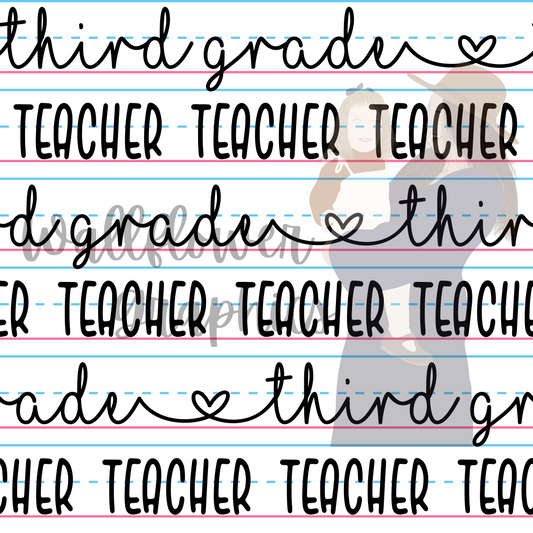 third grade
TEACHER TEACHER TEACHER
rd grade third
wallflower
ER TEACHER TEACHER TEACHE
graphics
rade third gr
CHER TEACHER TEACHER TEAC